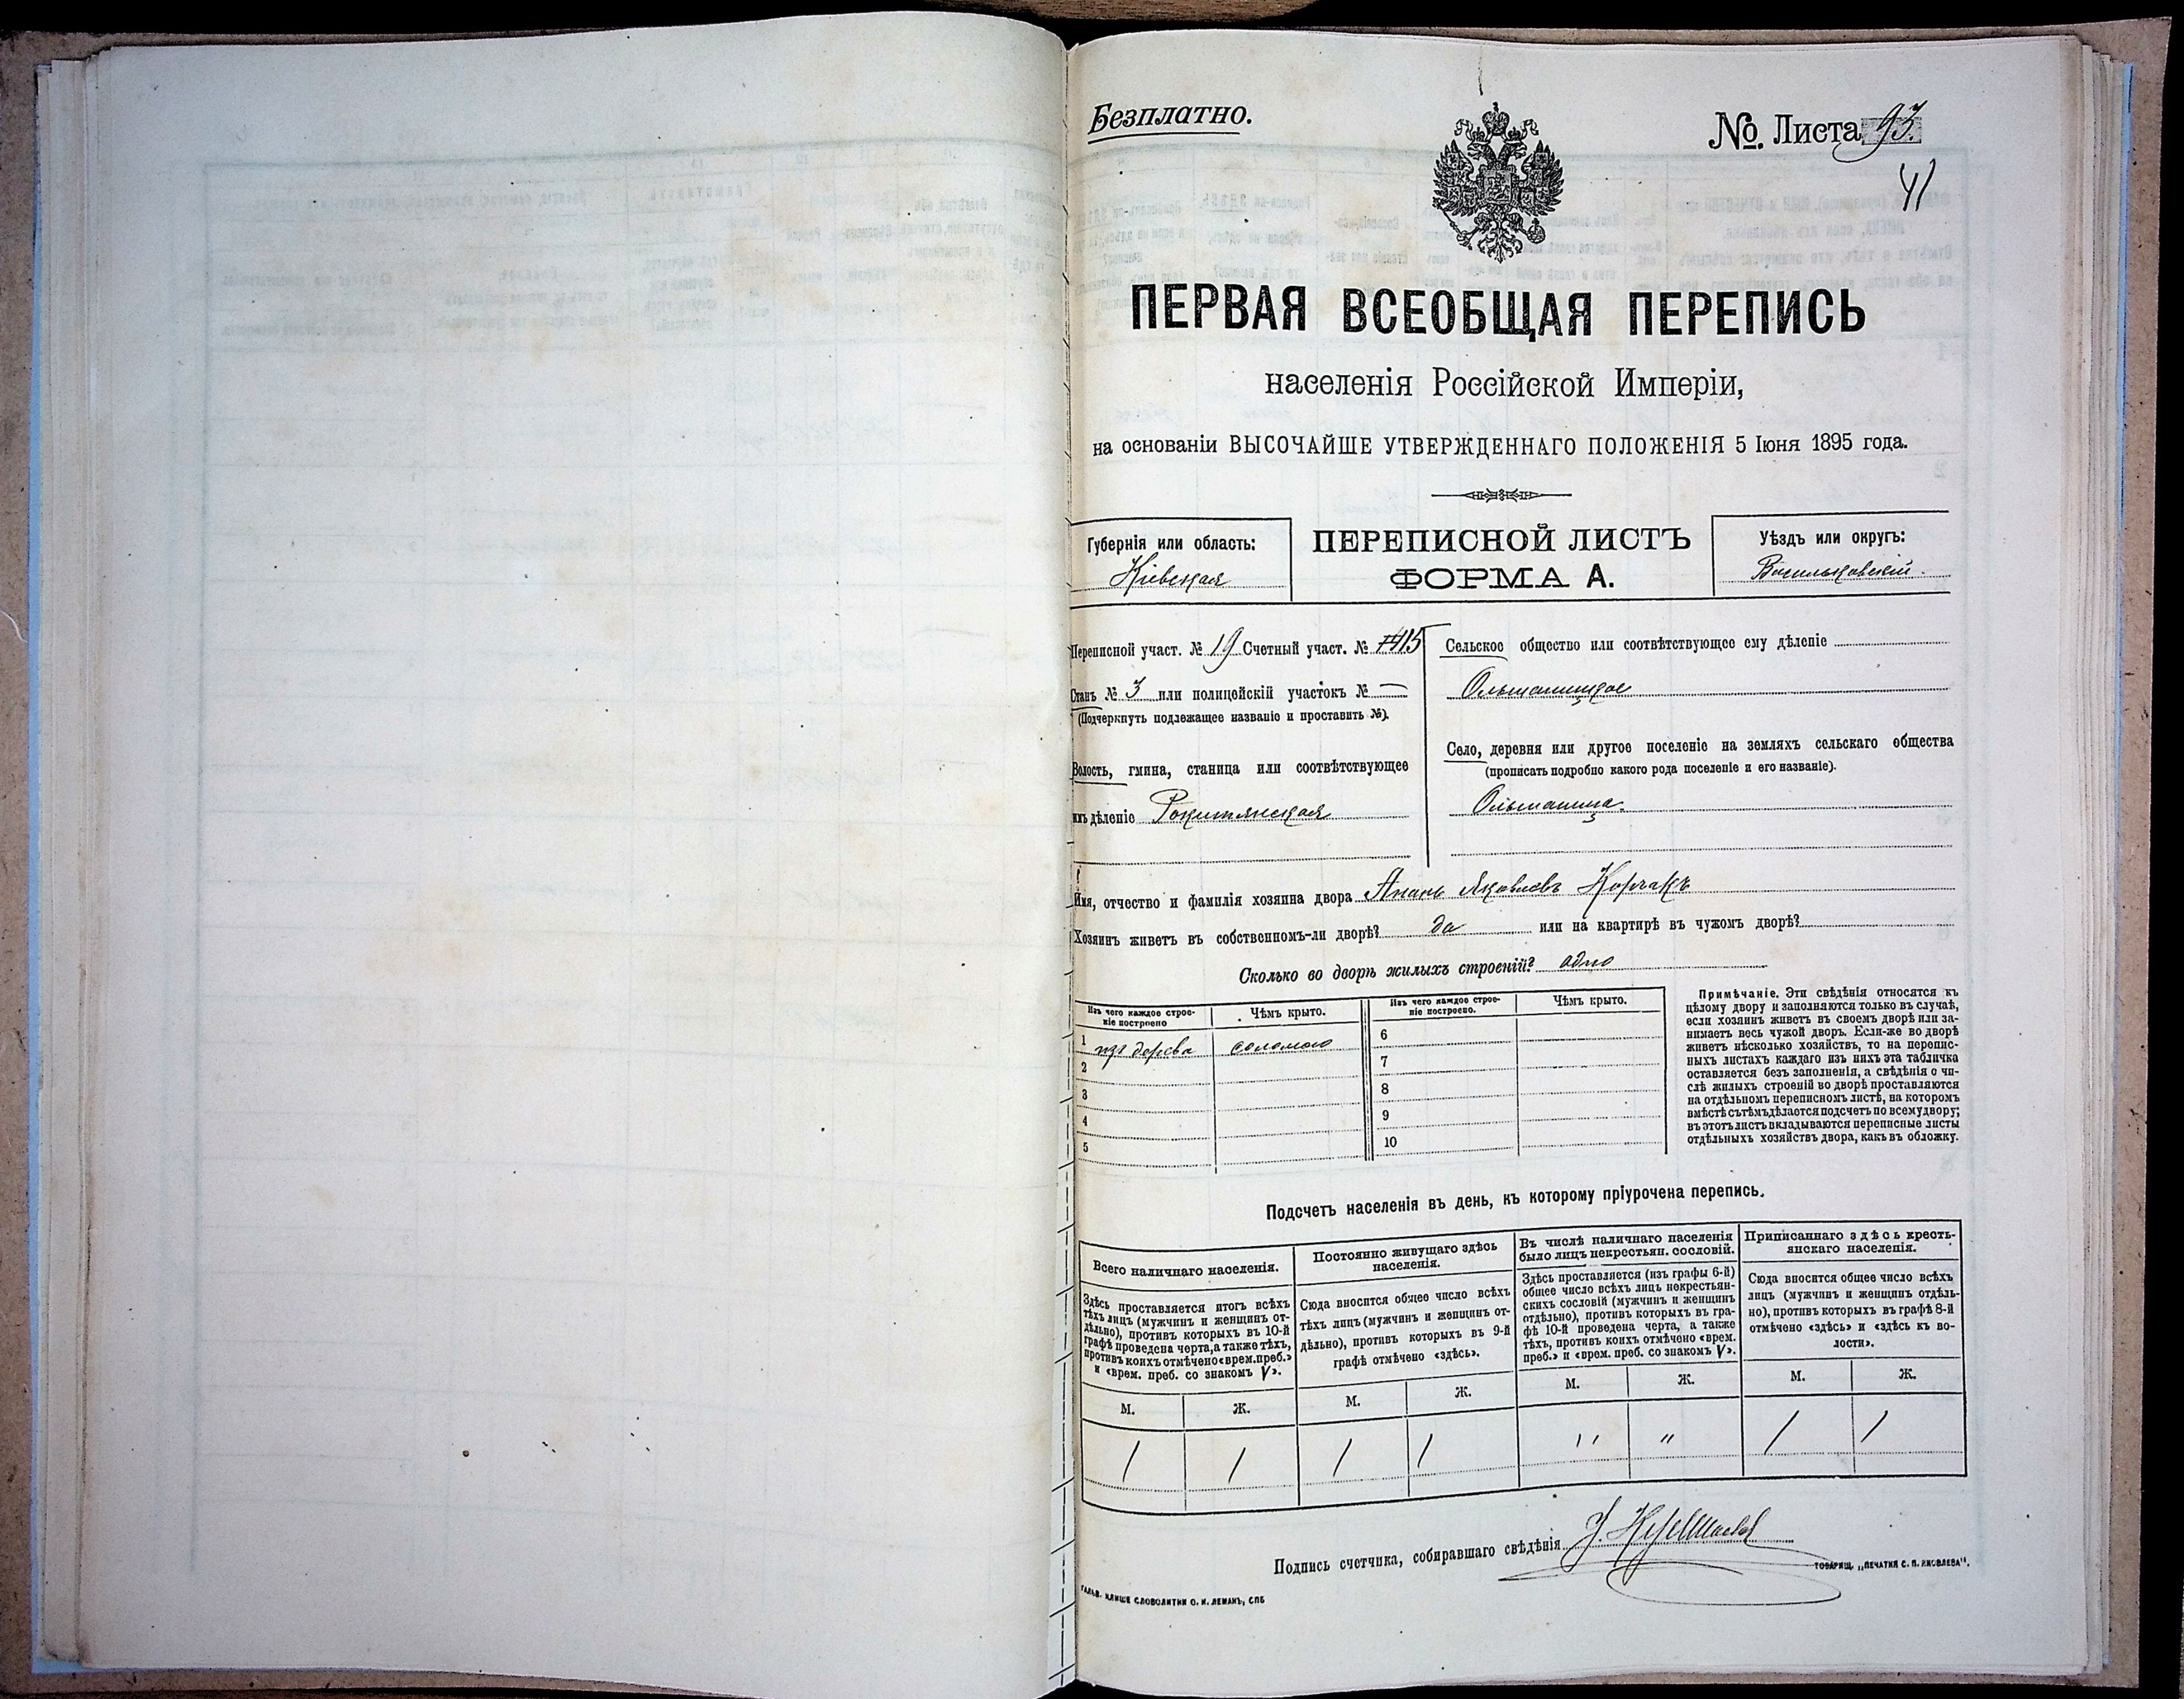 Безплатно.
№. Листа 93.
41
ПЕРВАЯ ВСЕОБЩАЯ ПЕРЕПИСЬ
населенія Россійской Имперіи,
на основаніи ВЫСОЧАЙШЕ УТВЕРЖДЕННАГО ПОЛОЖЕНІЯ 5 Іюня 1895 года.
Губернія или область:
Кіевская
ПЕРЕПИСНОЙ ЛИСТЪ
ФОРМА А.
Уѣздъ или округъ:
Васильковскій.
Переписной участ. № 19 Счетный участ. №
Станъ № 3 или полицейскій участокъ № —
(Подчеркнуть подлежащее названіе и проставить №).
Волость, гмина, станица или соотвѣтствующее
имъ дѣленіе Рокитянская
Сельское общество или соотвѣтствующее ему дѣленіе
Ольшаницкое
Село, деревня или другое поселеніе на земляхъ сельскаго общества
(прописать подробно какого рода поселеніе и его названіе).
Ольшаница.
Имя, отчество и фамилія хозяина двора Яковлевъ Корчакъ
Хозяинъ живетъ въ собственномъ-ли дворѣ? да или на квартирѣ въ чужомъ дворѣ?
Сколько во дворѣ жилыхъ строеній? одно
Изъ чего каждое строе-
ніе построено
Чѣмъ крыто.
1 изъ дерева соломою
2
3
4
5
Изъ чего каждое строе-
ніе построено.
Чѣмъ крыто.
6
7
8
9
10
Примѣчаніе. Эти свѣдѣнія относятся къ
цѣлому двору и заполняются только въ случаѣ,
если хозяинъ живетъ въ своемъ дворѣ или за-
нимаетъ весь чужой дворъ. Если-же во дворѣ
живетъ нѣсколько хозяйствъ, то на перепис-
ныхъ листахъ каждаго изъ нихъ эта табличка
оставляется безъ заполненія, а свѣдѣнія о чи-
слѣ жилыхъ строеній во дворѣ проставляются
на отдѣльномъ переписномъ листѣ, на которомъ
вмѣстѣ съ тѣмъ дѣлается подсчетъ по всему двору;
въ этотъ листъ вкладываются переписные листы
отдѣльныхъ хозяйствъ двора, какъ въ обложку.
Подсчетъ населенія въ день, къ которому пріурочена перепись.
Всего наличнаго населенія.
Здѣсь проставляется итогъ всѣхъ
тѣхъ лицъ (мужчинъ и женщинъ от-
дѣльно), противъ которыхъ въ 10-й
графѣ проведена черта, а также тѣхъ,
противъ коихъ отмѣчено «врем. преб.»
и «врем. преб. со знакомъ V».
М. Ж.
1 1
Постоянно живущаго здѣсь
населенія.
Сюда вносится общее число всѣхъ
тѣхъ лицъ (мужчинъ и женщинъ от-
дѣльно), противъ которыхъ въ 9-й
графѣ отмѣчено «здѣсь».
М. Ж.
1 1
Въ числѣ наличнаго населенія
было лицъ некрестьян. сословій.
Здѣсь проставляется (изъ графы 6-й)
общее число всѣхъ лицъ некрестьян-
скихъ сословій (мужчинъ и женщинъ
отдѣльно), противъ которыхъ въ гра-
фѣ 10-й проведена черта, а также
тѣхъ, противъ коихъ отмѣчено «врем.
преб.» и «врем. преб. со знакомъ V».
М. Ж.
" "
Приписаннаго здѣсь кресть-
янскаго населенія.
Сюда вносится общее число всѣхъ
лицъ (мужчинъ и женщинъ отдѣль-
но), противъ которыхъ въ графѣ 8-й
отмѣчено «здѣсь» и «здѣсь къ во-
лости».
М. Ж.
1 1
Подпись счетчика, собиравшаго свѣдѣнія
ГАЛЬВ. КЛИШЕ СЛОВОЛИТНИ О. И. ЛЕМАНЪ, СПБ
ТОВАРИЩ. „ПЕЧАТНЯ С. П. ЯКОВЛЕВА".